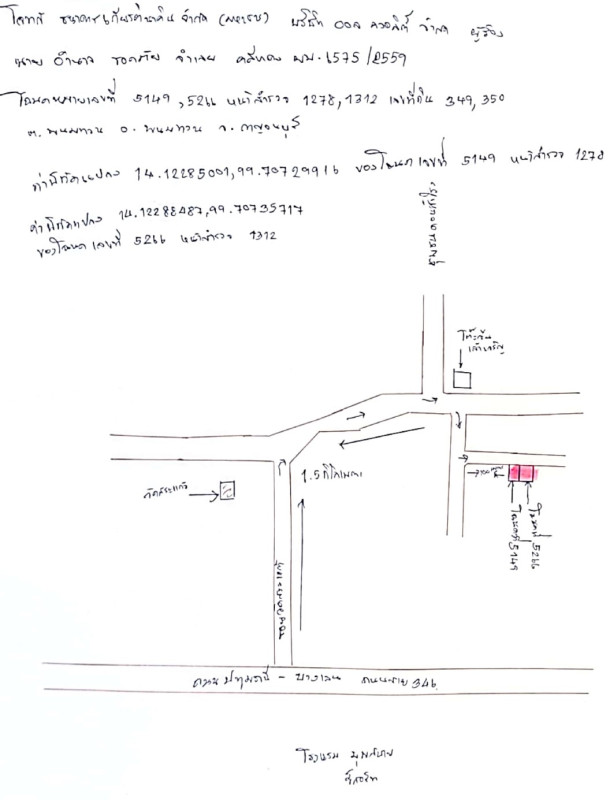 โจทก์ ธนาคารเกียรตินาคิน จำกัด (มหาชน) บริษัท ออล ควอลิตี้ จำกัด ผู้ร้อง
นาย อำนาจ รอดภัย จำเลย คดีแดง ผบ.6575/2559
โฉนดหมายเลขที่ 5149, 5266 หน้าสำรวจ 1278, 1312 เลขที่ดิน 349, 350
ต. พนมทวน อ. พนมทวน จ. กาญจนบุรี
ค่าพิกัดแปลง 14.12285001,99.70729916 ของโฉนดเลขที่ 5149 หน้าสำรวจ 1278
ค่าพิกัดแปลง 14.12288487,99.70735717
ของโฉนดเลขที่ 5266 หน้าสำรวจ 1312
1.5 กิโลเมตร
โฉนดที่ 5149
โฉนดที่ 5266
ถนน ปทุมธานี - บางเลน ถนนสาย 346
โรงแรม
รีสอร์ท